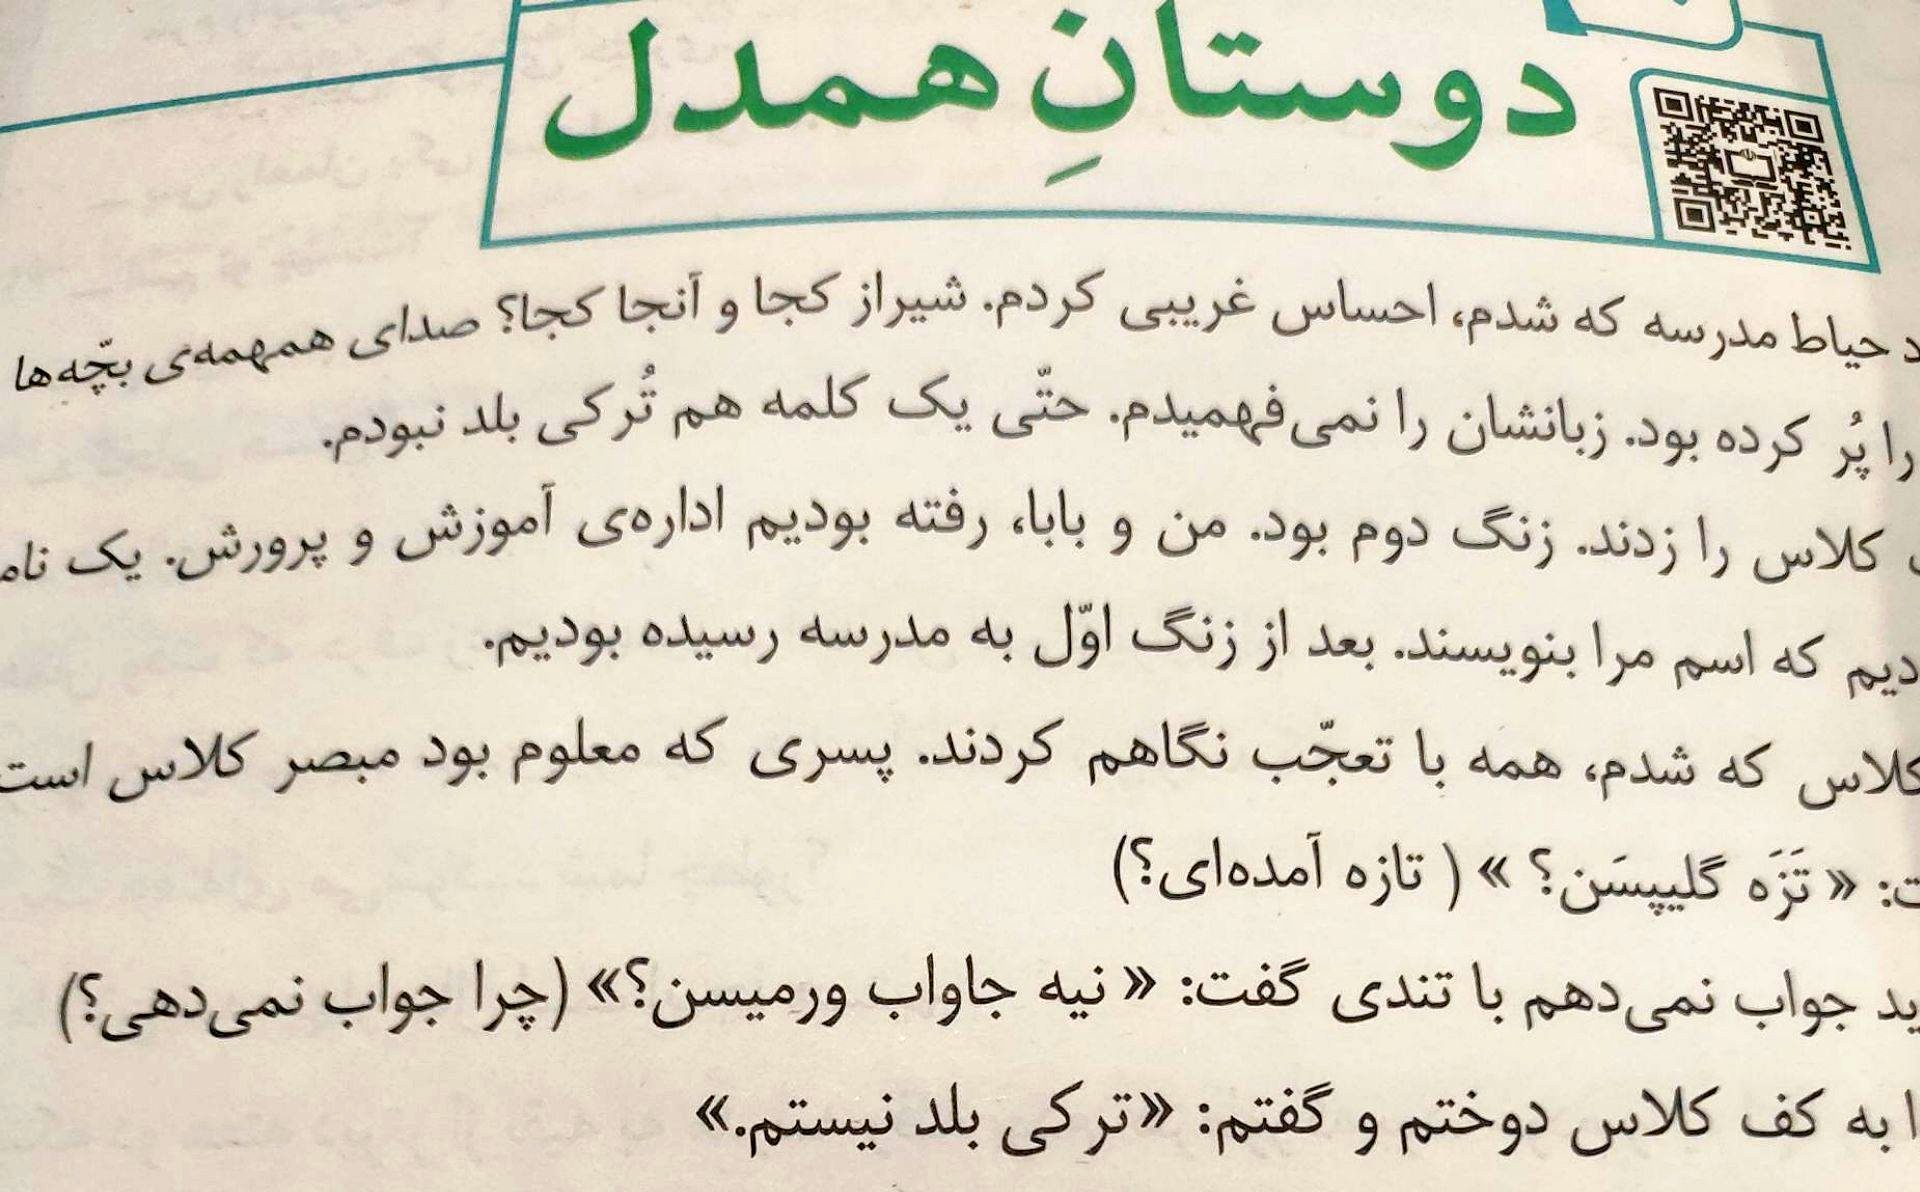 دوستانِ همدل
حیاط مدرسه که شدم، احساس غریبی کردم. شیراز کجا و آنجا کجا؟ صدای همهمه‌ی بچّه‌ها
را پُر کرده بود. زبانشان را نمی‌فهمیدم. حتّی یک کلمه هم تُرکی بلد نبودم.
کلاس را زدند. زنگ دوم بود. من و بابا، رفته بودیم اداره‌ی آموزش و پرورش. یک
که اسم مرا بنویسند. بعد از زنگ اوّل به مدرسه رسیده بودیم.
کلاس که شدم، همه با تعجّب نگاهم کردند. پسری که معلوم بود مبصر کلاس است
« تَزَه گلیپسَن؟ » ( تازه آمده‌ای؟)
جواب نمی‌دهم با تندی گفت: « نیه جاواب ورمیسن؟» (چرا جواب نمی‌دهی؟)
به کف کلاس دوختم و گفتم: «ترکی بلد نیستم.»